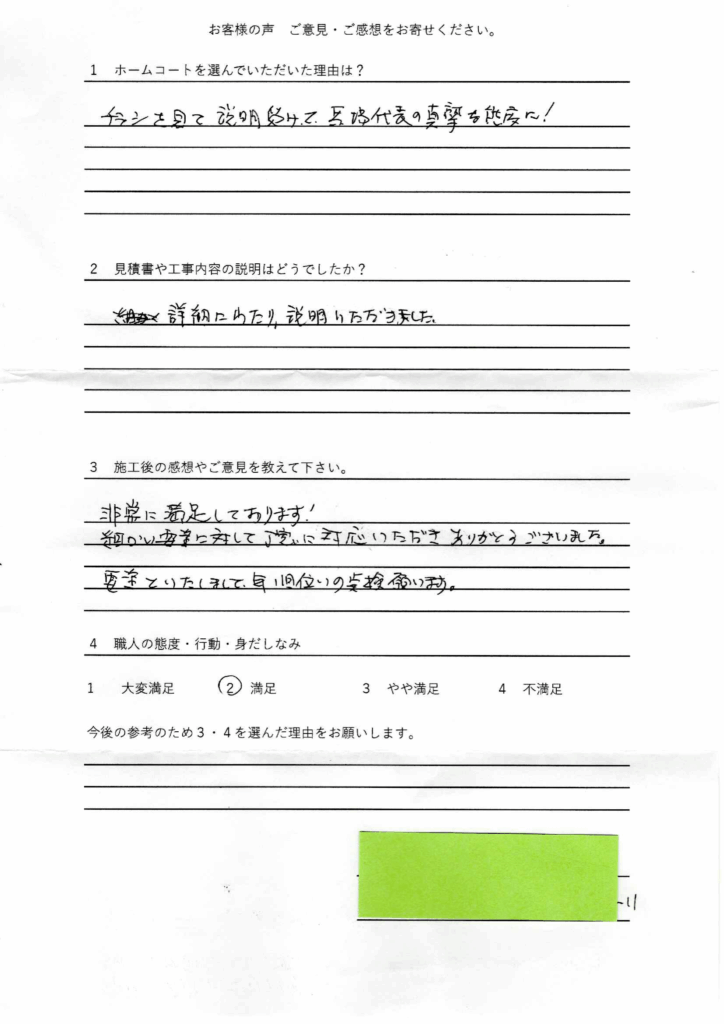 お客様の声 ご意見・ご感想をお寄せください。
1 ホームコートを選んでいただいた理由は?
チラシを見て説明受けて、長崎代表の真摯な態度に!
2 見積書や工事内容の説明はどうでしたか?
詳細にわたり、説明いただきました。
3 施工後の感想やご意見を教えて下さい。
非常に満足しております!
細かい要望に対して丁寧に対応いただきありがとうございました。
要望といたしまして、年1回位いの点検願います。
4 職人の態度・行動・身だしなみ
1 大変満足 2 満足 3 やや満足 4 不満足
今後の参考のため3・4を選んだ理由をお願いします。
-11